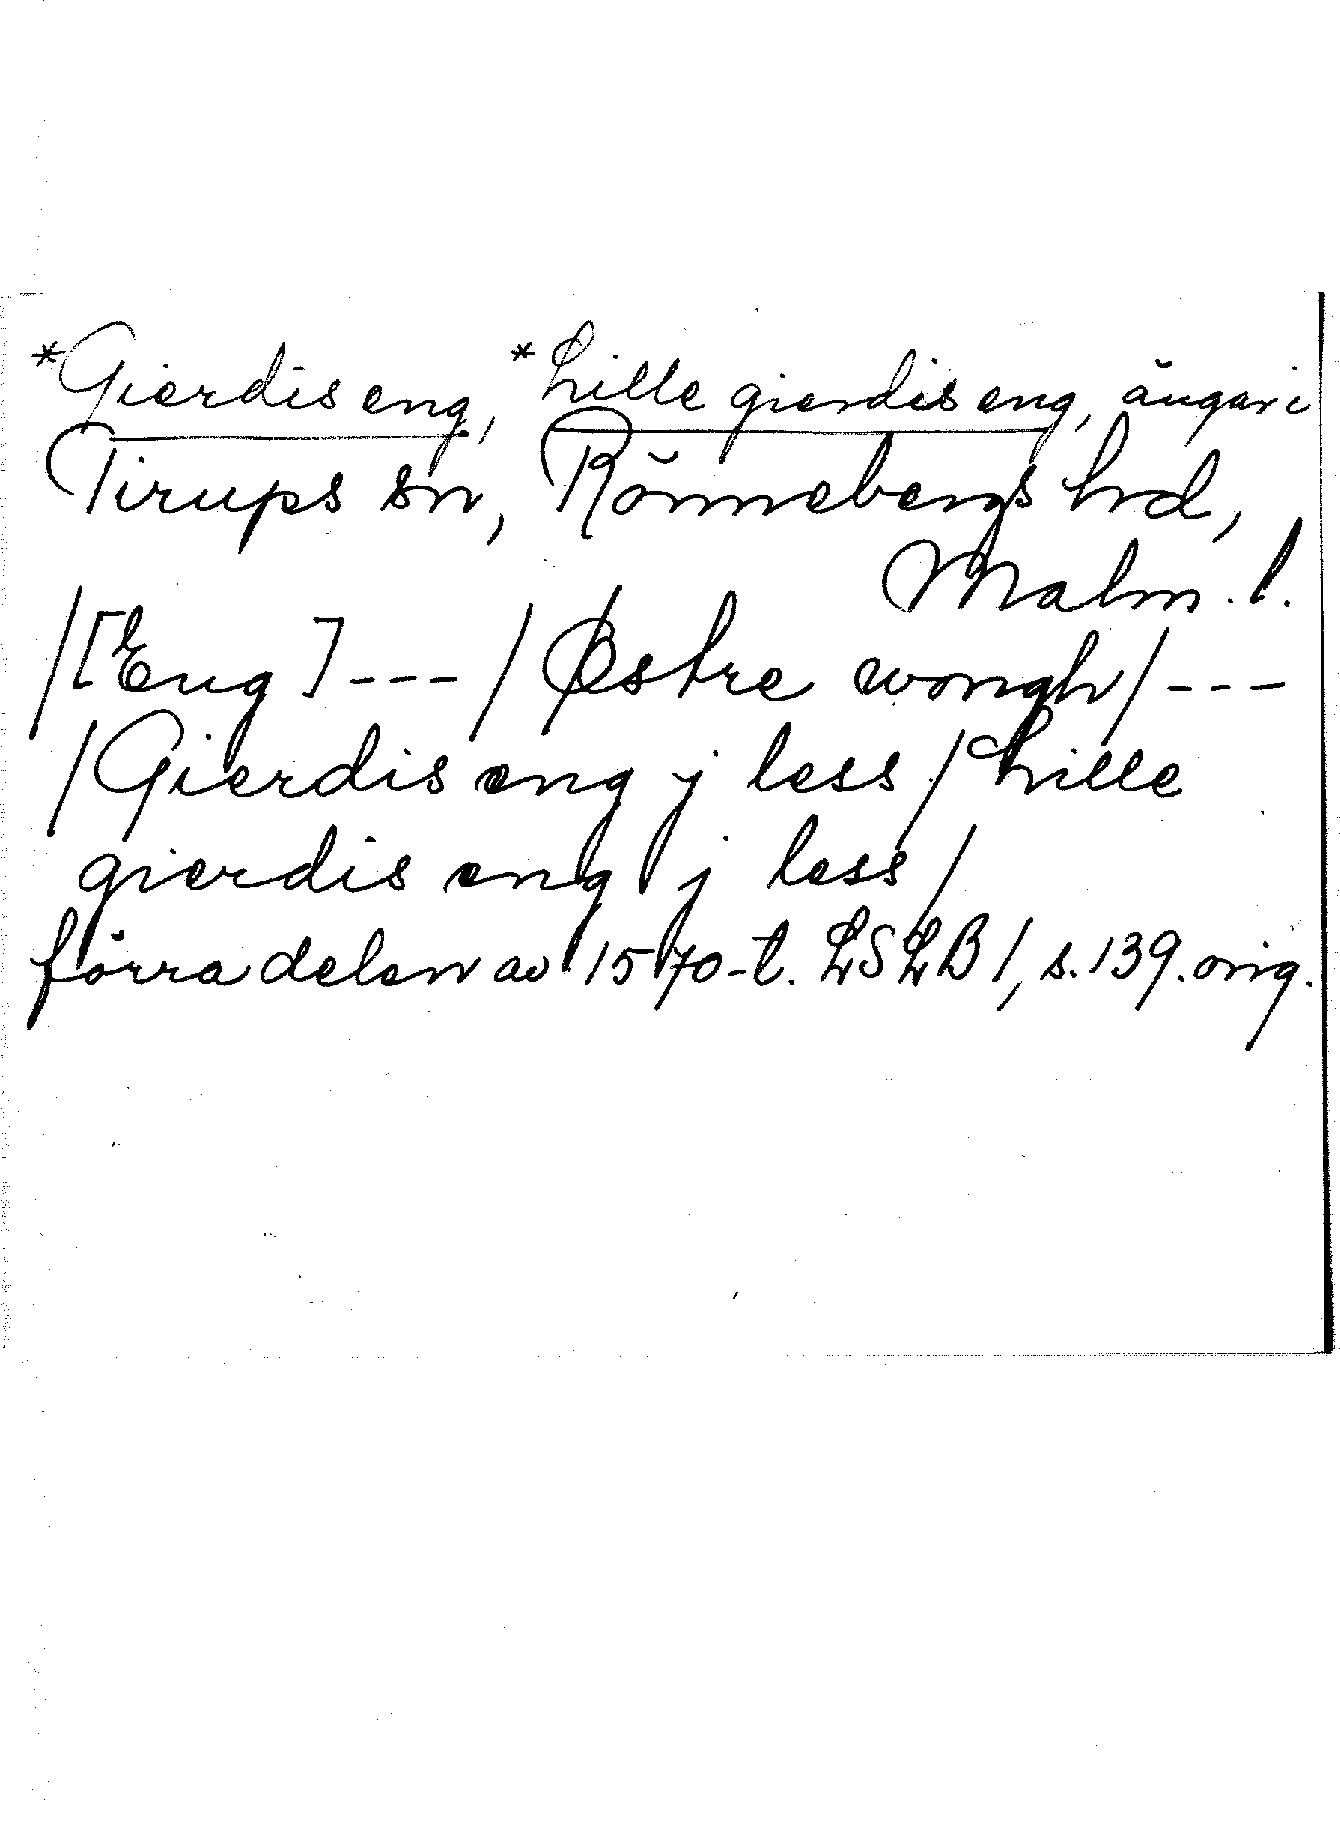 *Gierdis eng, *Lille gierdis eng, ängar i
Tirups sn, Rönnebergs hrd,
Malm. l.
/[Eng]---/Østre wongh/---
/Gierdis eng j less/Lille
gierdis eng j less/
förra delen av 1570-t. LSLB 1, s. 139. orig.